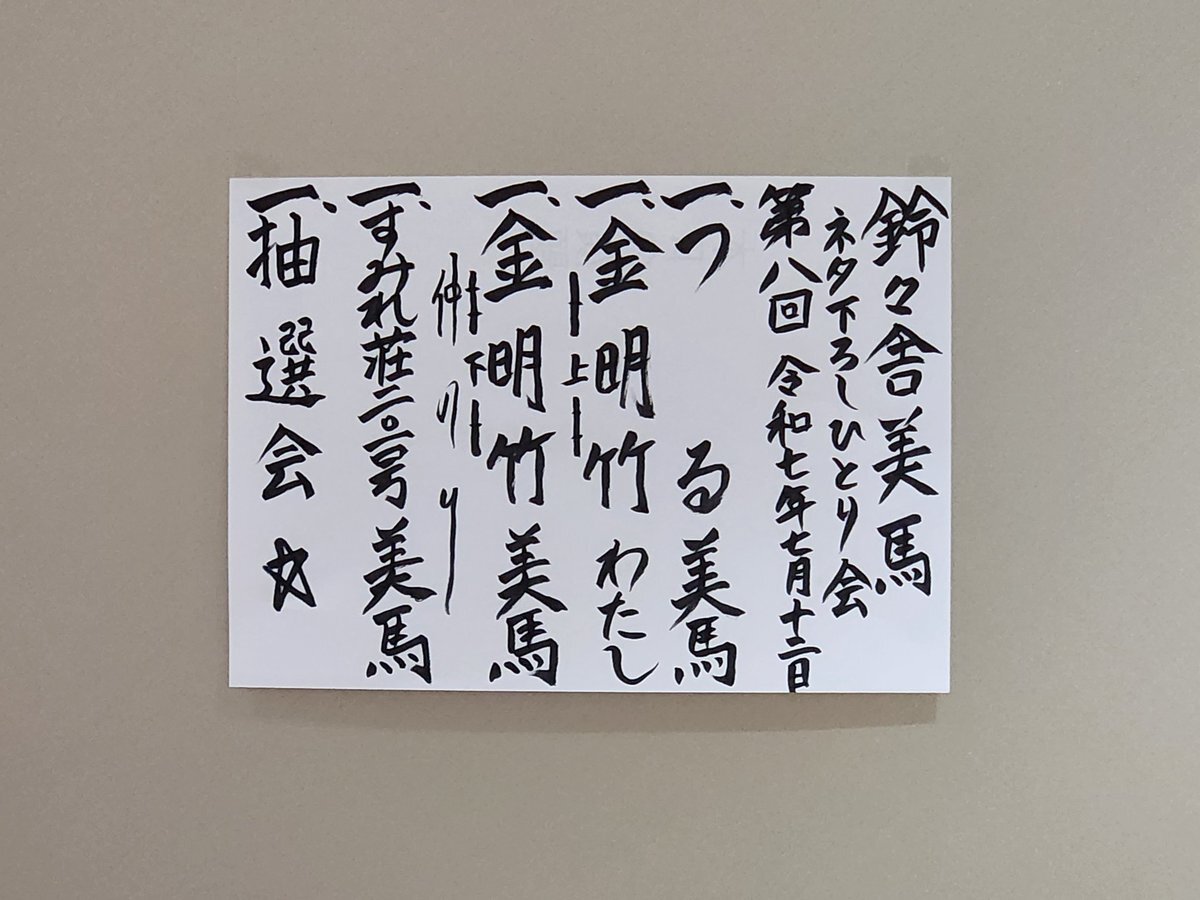 鈴々舎美馬
ネタ下ろしひとり会
第八回 令和七年七月十二日
一、つる 美馬
一、金明竹 わたし
―上―
一、金明竹 美馬
―下―
仲入り
一、すみれ荘二〇一号 美馬
一、抽選会 ☆